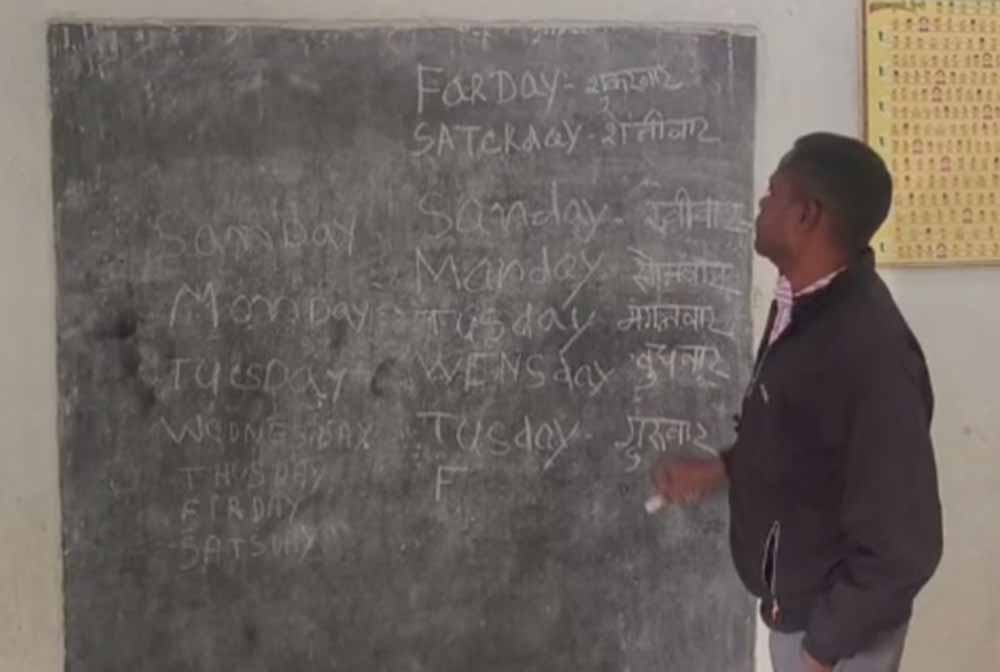 FarDay - शुकरवार
SATCKday - शंनीवार
Sanday - रवीवार
Manday - सोमवार
Tusday मंगलवार
WENSday बुधवार
Tusday - गुरुवार
F
SamDay
MonDay
TuesDay
WEDNESDAY
THUSDAY
FIRDAY
SATSDAY